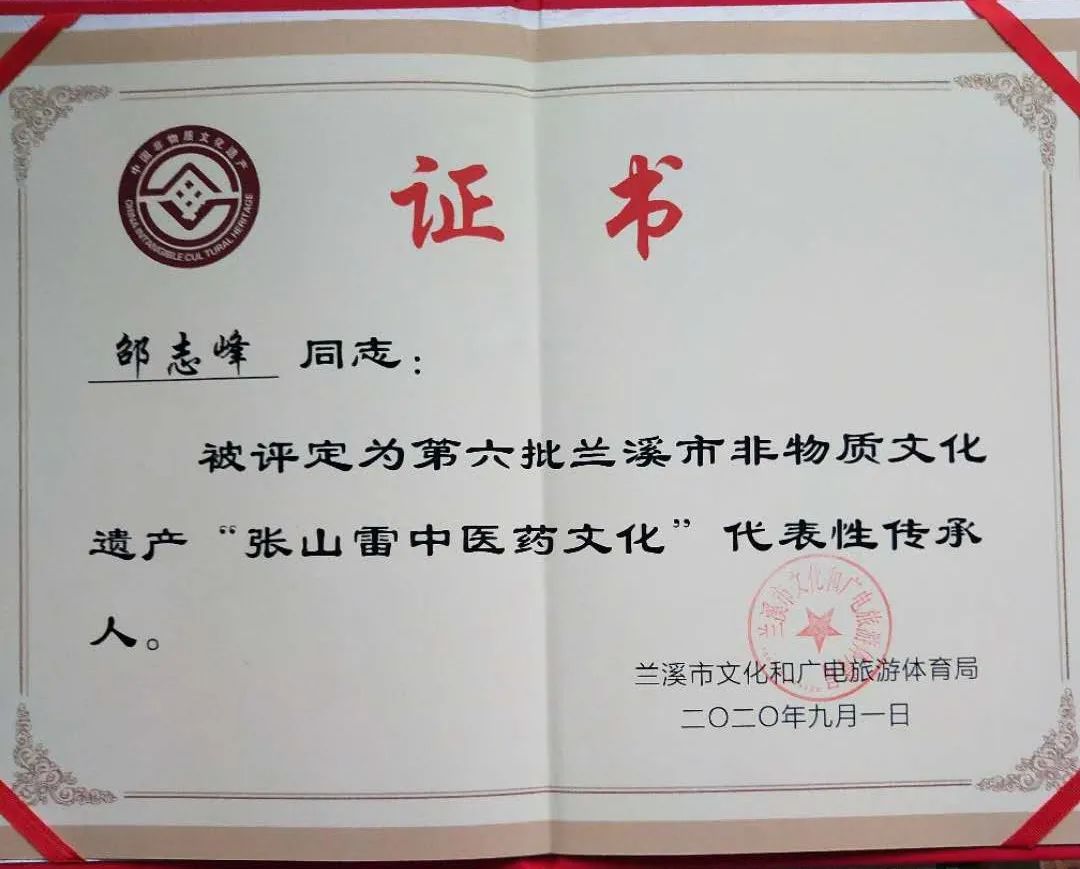 中国非物质文化遗产
CHINA INTANGIBLE CULTURAL HERITAGE
证书
邵志峰 同志：
被评定为第六批兰溪市非物质文化
遗产“张山雷中医药文化”代表性传承
人。
兰溪市文化和广电旅游体育局
兰溪市文化和广电旅游体育局
二〇二〇年九月一日